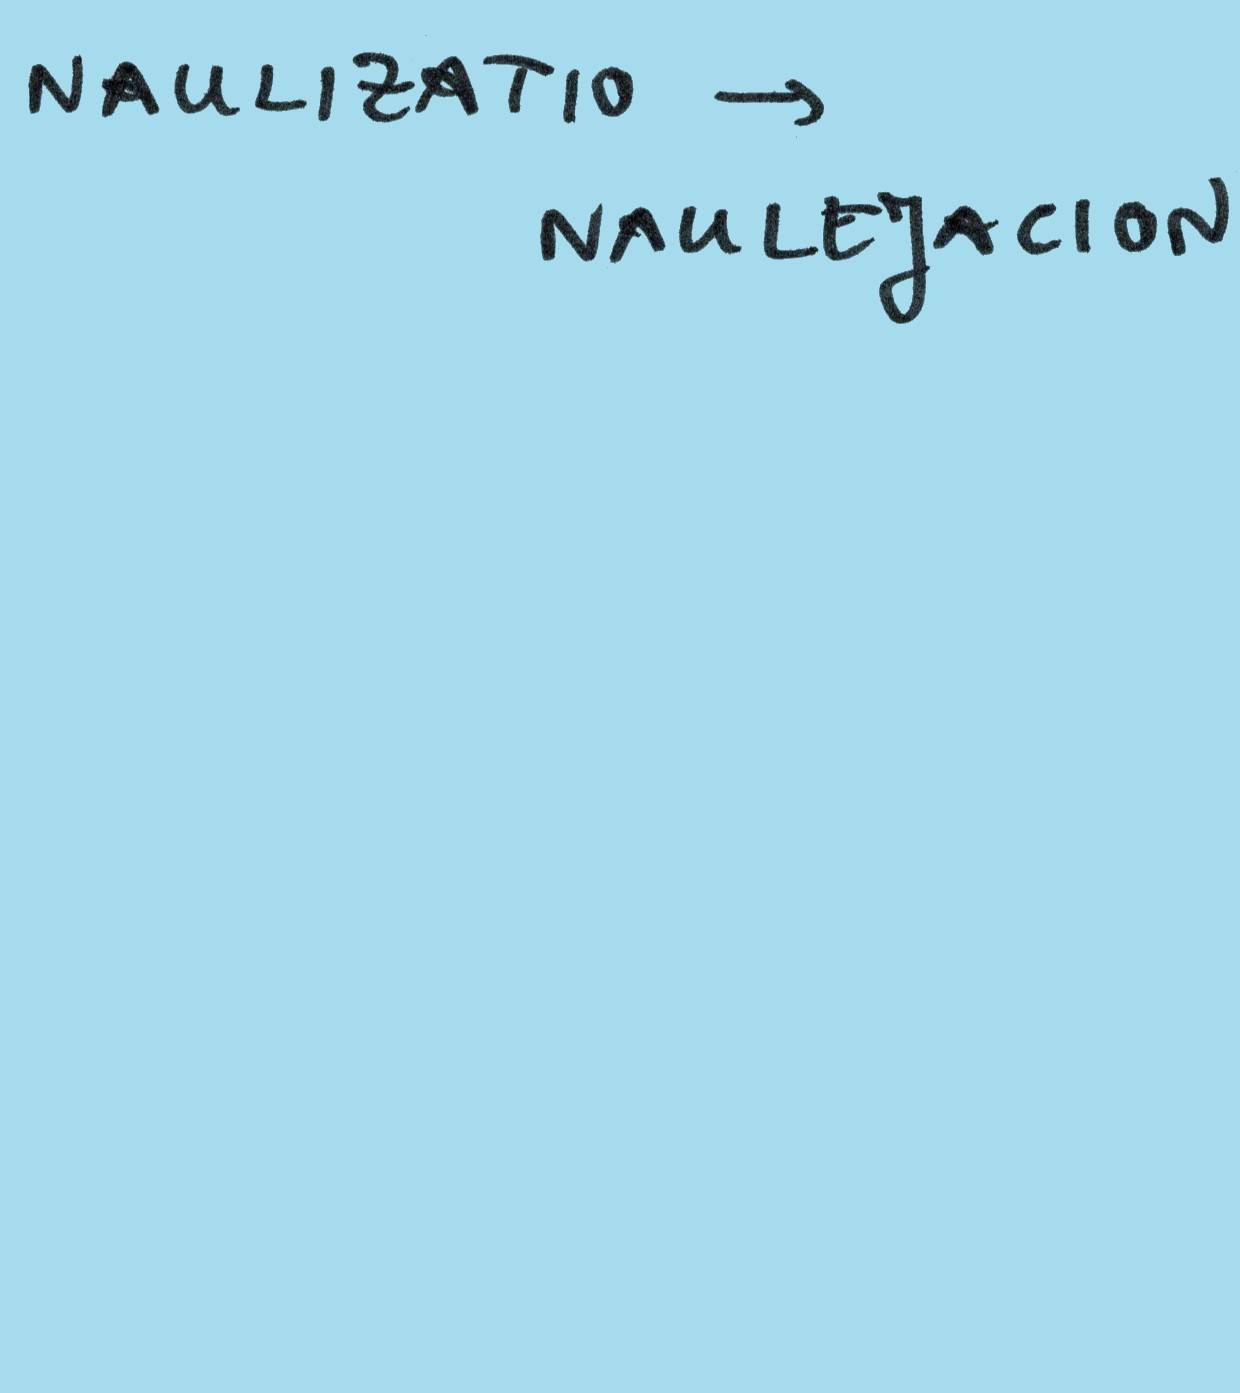 NAULIZATIO →
NAULEJACION